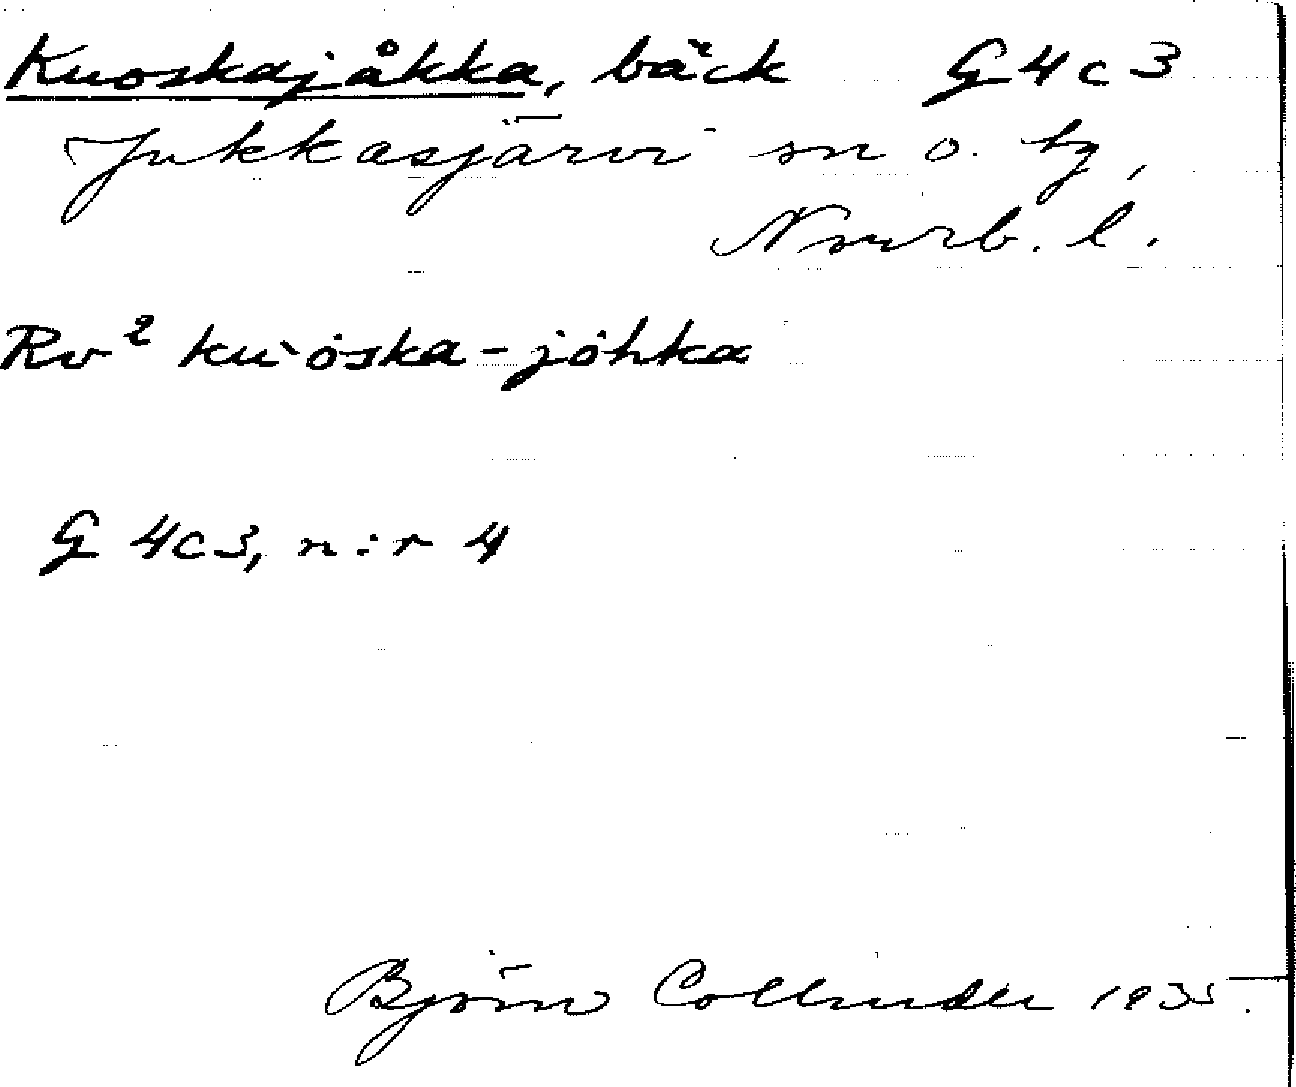 Kuoskajåkka, bäck G4c3
Jukkasjärvi sn o. tg,
Norrb. l.
Rv² ku`ȯska-jȯhka
G 4c3, n:r 4
Björn Collinder 1935.